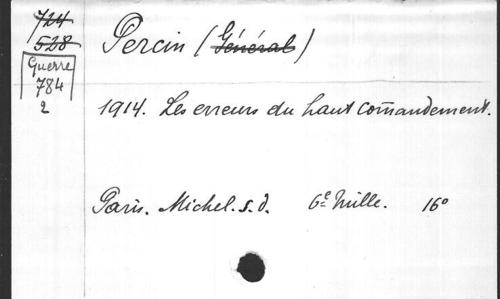 724
528
Guerre
784
2
Percin (Général)
1914. Les erreurs du haut com̄andement.
Paris. Michel. s. d. 6e mille. 16°